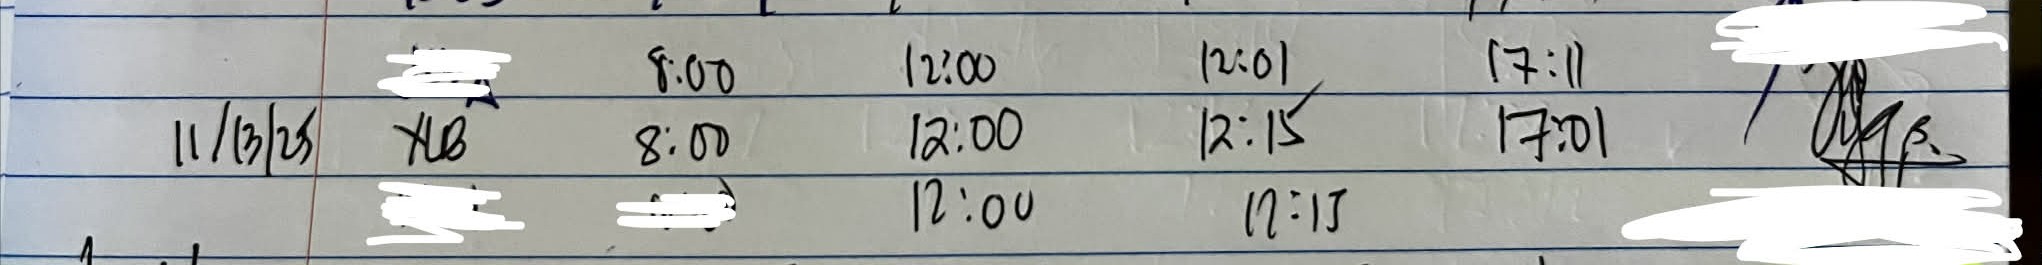 8:00 12:00 12:01 17:11
11/13/25 XLB 8:00 12:00 12:15 17:01
12:00 12:15